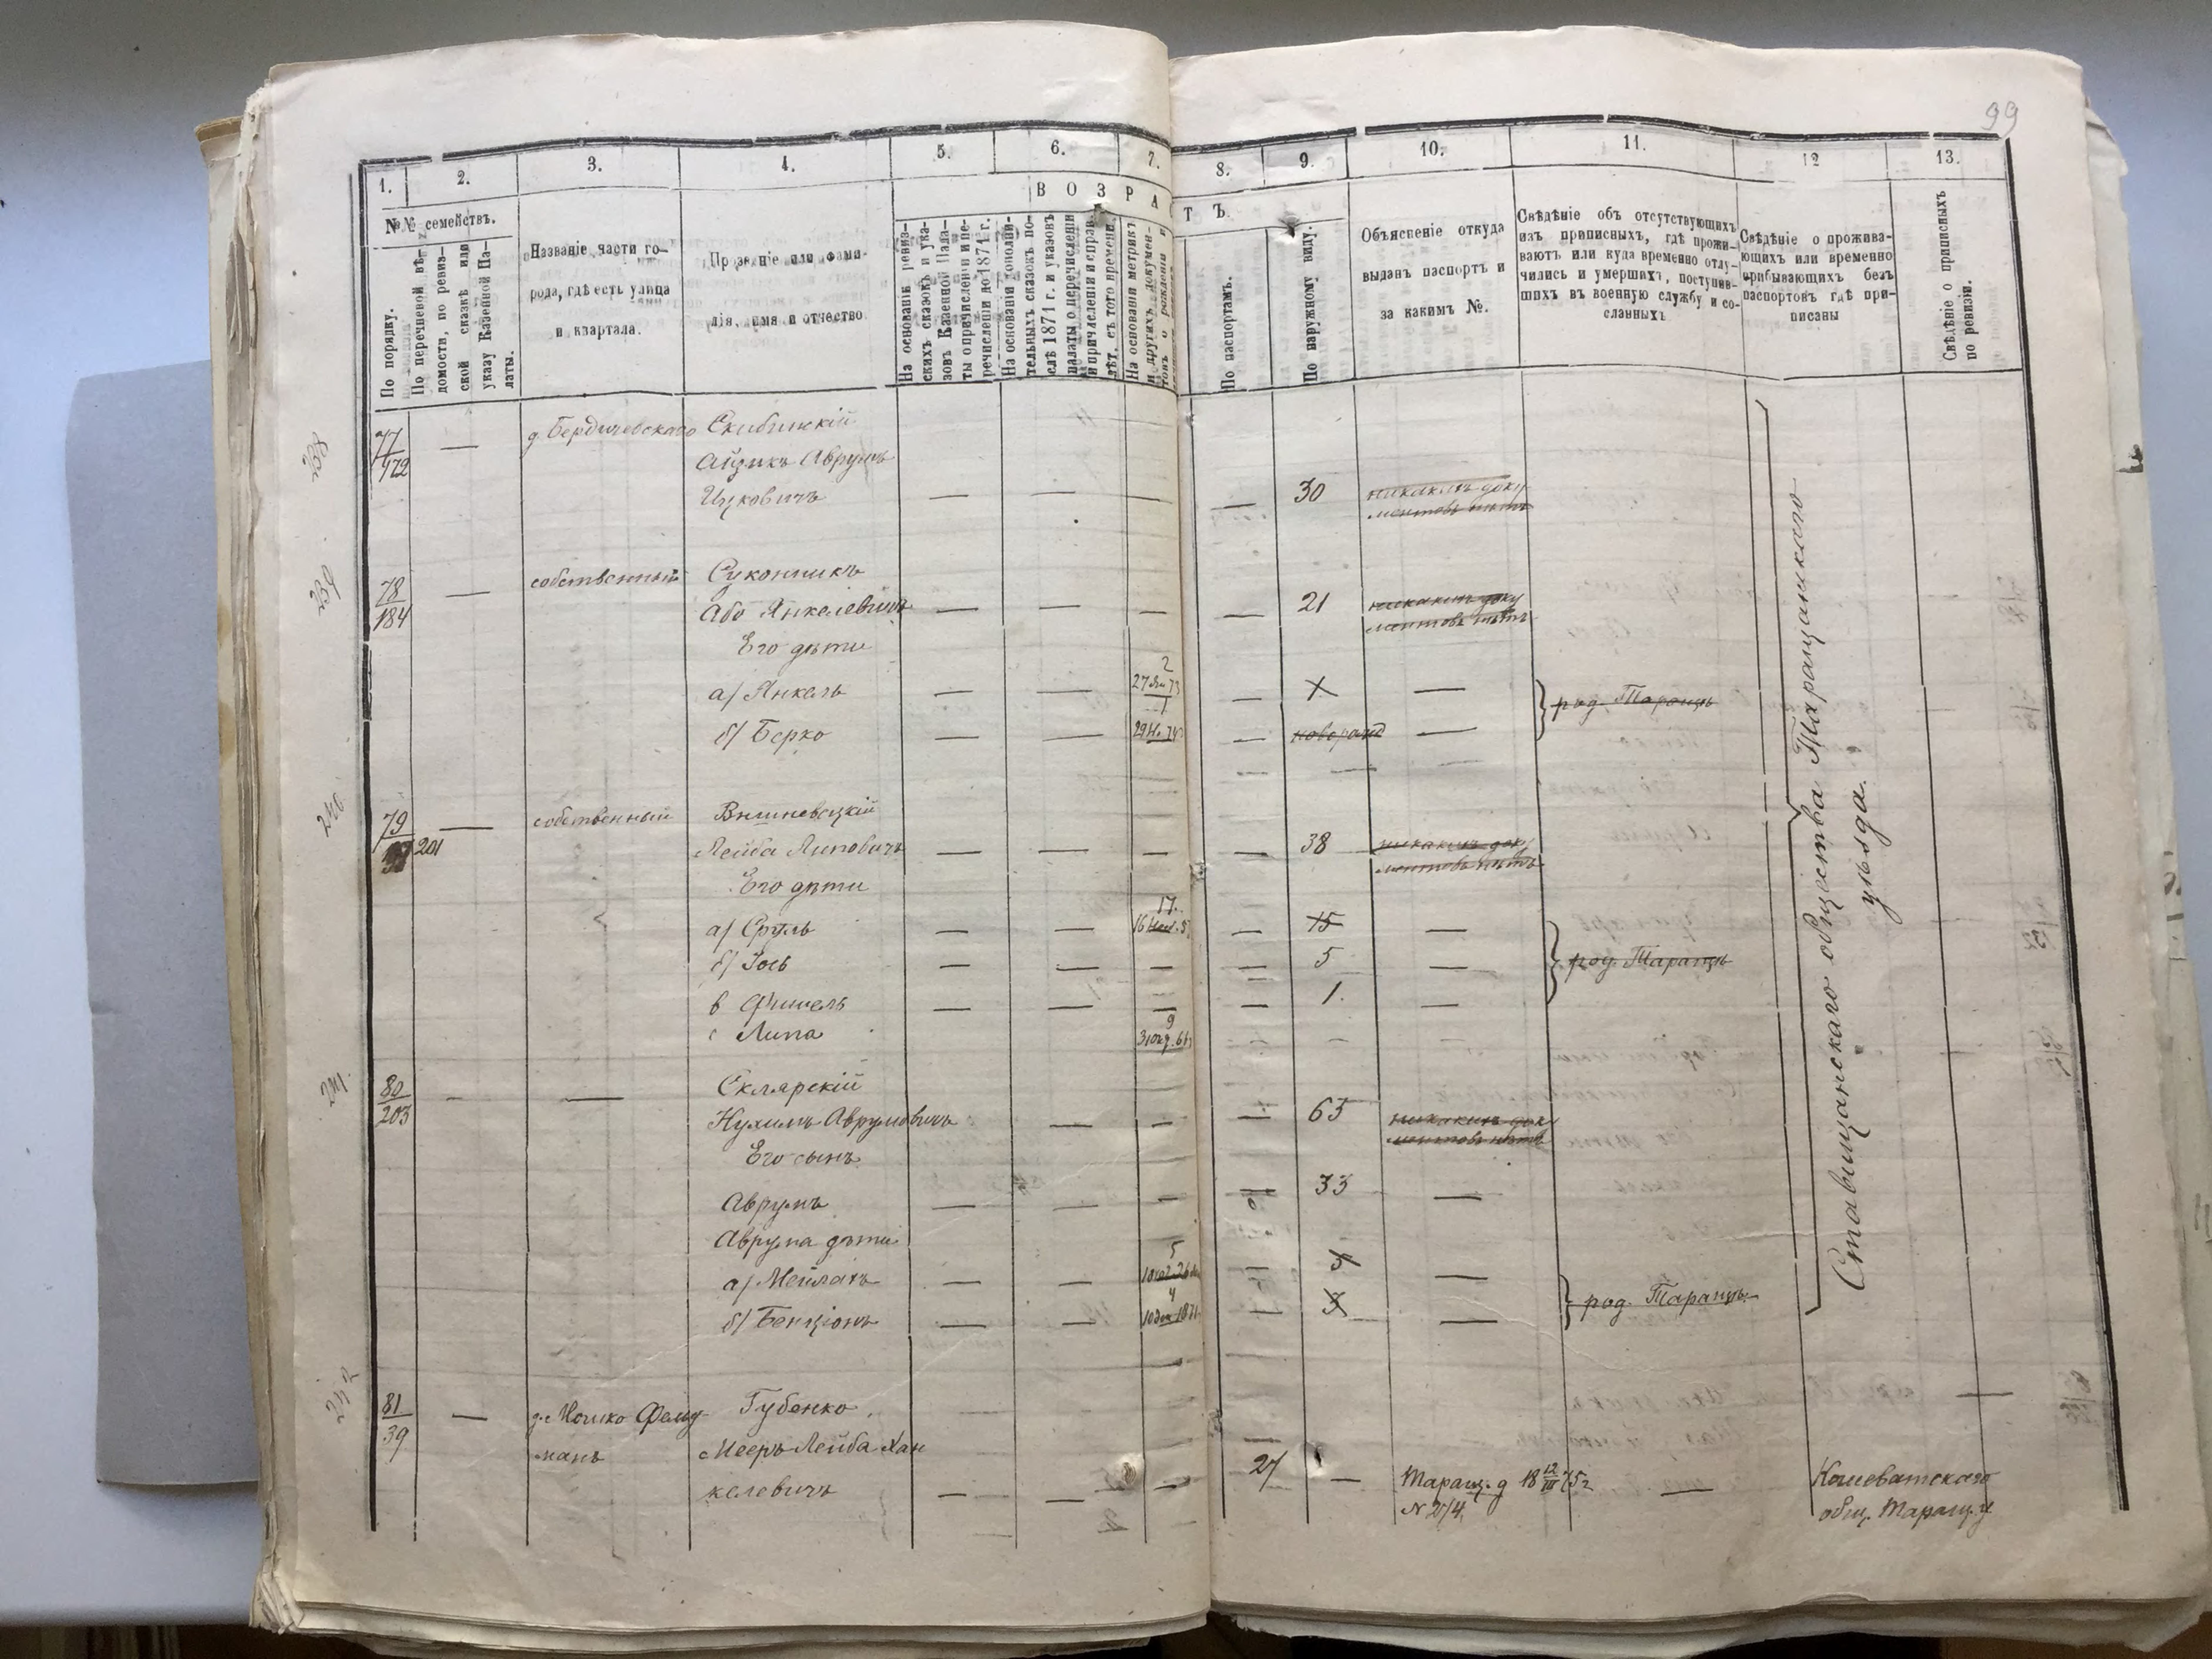 99
1. 2. 3. 4. 5. 6. 7. 8. 9. 10. 11. 12 13.
№№ семействъ.
По порядку.
По перечневой вѣ-
домости, по ревиз-
ской сказкѣ или
указу Казенной Па-
латы.
Названіе части го-
рода, гдѣ есть улица
и квартала.
Прозваніе или фами-
лія, имя и отчество
ВОЗРАСТЪ.
На основаніи ревиз-
скихъ сказокъ и ука-
зовъ Казенной Пала-
ты о причисленіи и пе-
речисленіи до 1871 г.
На основаніи дополни-
тельныхъ сказокъ по-
слѣ 1871 г. и указовъ
палаты о перечисленіи
и причисленіи и справ.
лѣт. съ того времени.
На основаніи метрикъ
и другихъ докумен-
товъ о рожденіи и
По паспортамъ.
По наружному виду.
Объясненіе откуда
выданъ паспортъ и
за какимъ №.
Свѣдѣніе объ отсутствующихъ
изъ приписныхъ, гдѣ прожи-
ваютъ или куда временно отлу-
чились и умершихъ, поступив-
шихъ въ военную службу и со-
сланныхъ
Свѣдѣніе о прожива-
ющихъ или временно
прибывающихъ безъ
паспортовъ гдѣ при-
писаны
Свѣдѣніе о приписныхъ
по ревизіи.
77 — д. Бердичевскаго Скибинскій
172 Айзикъ Аврумъ
Ицковичъ — — — — 30 никакихъ доку
ментовъ нѣтъ
78 — собственный Суконникъ
184 Або Янкелевичъ — — — — 21 никакихъ доку
ментовъ нѣтъ
Его дѣти
2
а) Янкель — — 27 Ян 73 — —
1
род. Таращѣ
б) Берко — — — новорожд —
240
79 — собственный Вишневецкій
201 Лейба Липовичъ — — — — 38 никакихъ доку
ментовъ нѣтъ
Его дѣти
17.
а) Сруль — — — 15 —
б) Іось — — — — 5 — род. Таращѣ
в Фишель — — — — 1. —
9
Липа
241
80 — — Склярскій
203 Нухимъ Аврумовичъ — — — 63 никакихъ док
ментовъ нѣтъ
Его сынъ
Аврумъ — — — — 33 —
Аврума дѣти
5
а) Мейлахъ — — — —
4
б) Бенціонъ — — 10 дек 1871 — — род. Таращѣ.
Ставищанскаго общества Таращанскаго
уѣзда.
242
81 — д. Мошко Фельд- Губенко —
39 манъ Мееръ Лейба Хан
келевичъ — — — 27 — Таращ. д 18 12/III 75 г — Кошеватскаго
общ. Таращ. у